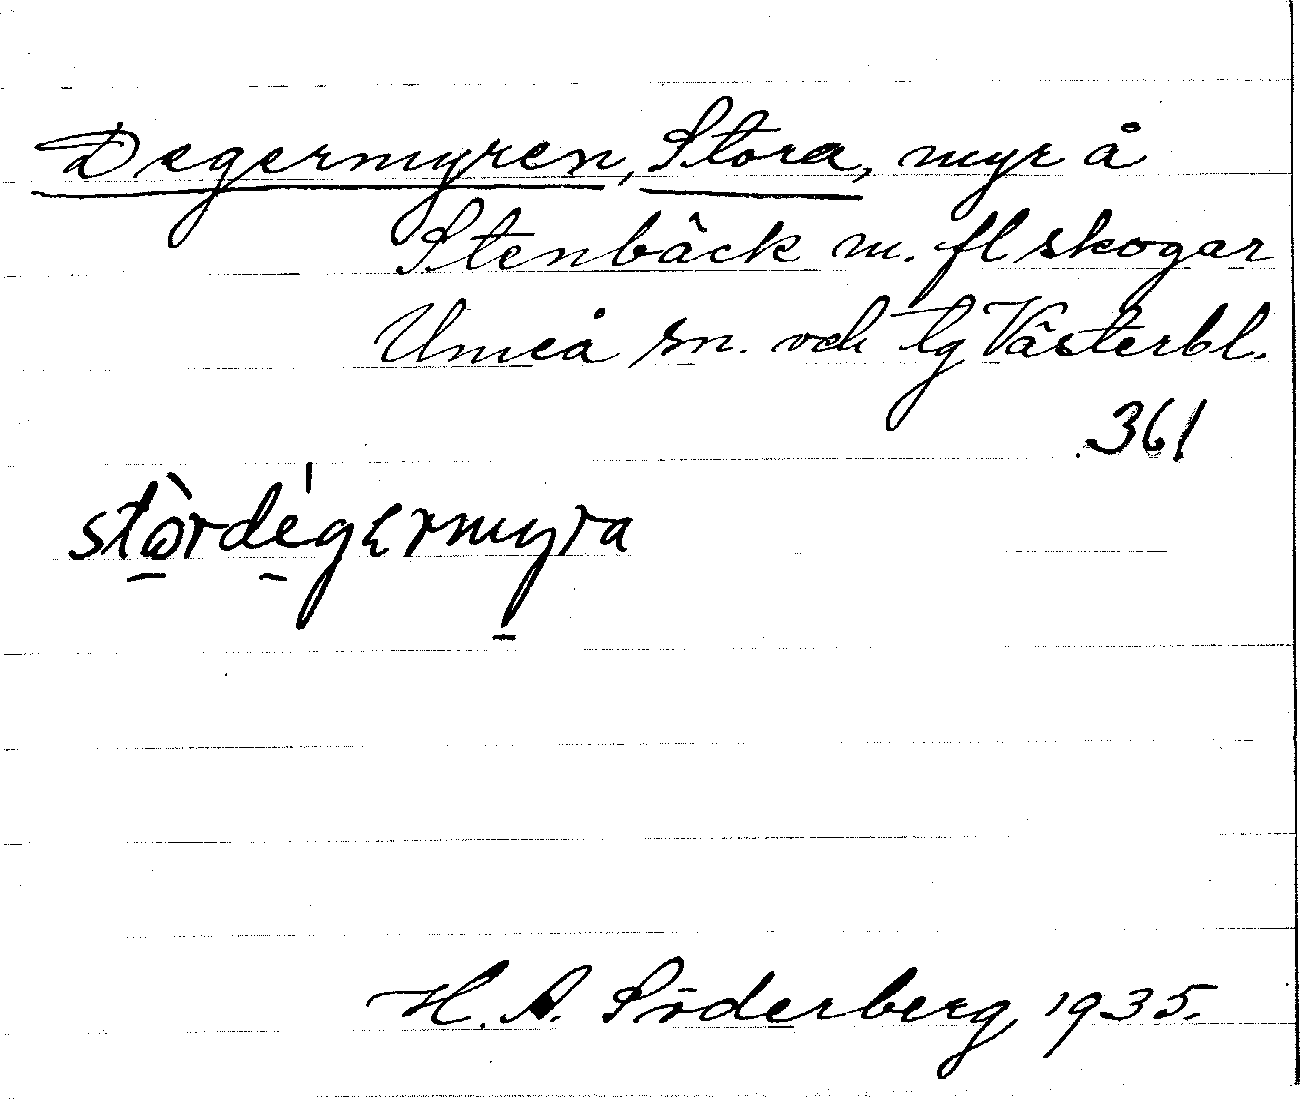 Degermyren, Stora, myr å
Stenbäck m. fl skogar
Umeå sn. och tg Västerbl.
361
stò̠rdé̠gərmy̠ra
H. A. Söderberg, 1935.